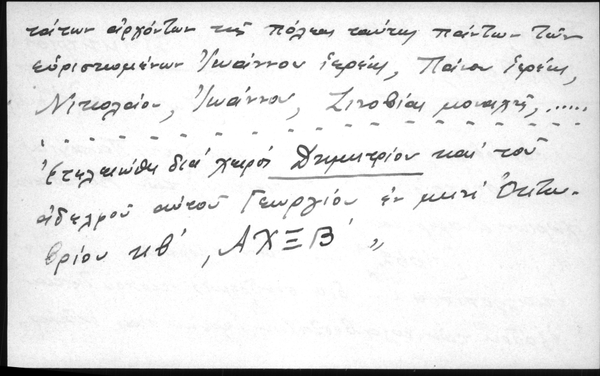 τάτων ἀρχόντων τῆς πόλεως ταύτης πάντων τῶν
εὑρισκομένων Ἰωάννου ἱερέως, Πάνου ἱερέως,
Νικολάου, Ἰωάννου, Ζινοβίας μοναχῆς, .....
Ἐτελειώθη διὰ χειρός Δημητρίου καὶ τοῦ
ἀδελφοῦ αὐτοῦ Γεωργίου ἐν μηνὶ Ὀκτω-
βρίου κβ΄, ͵ΑΧΞΒ΄ „